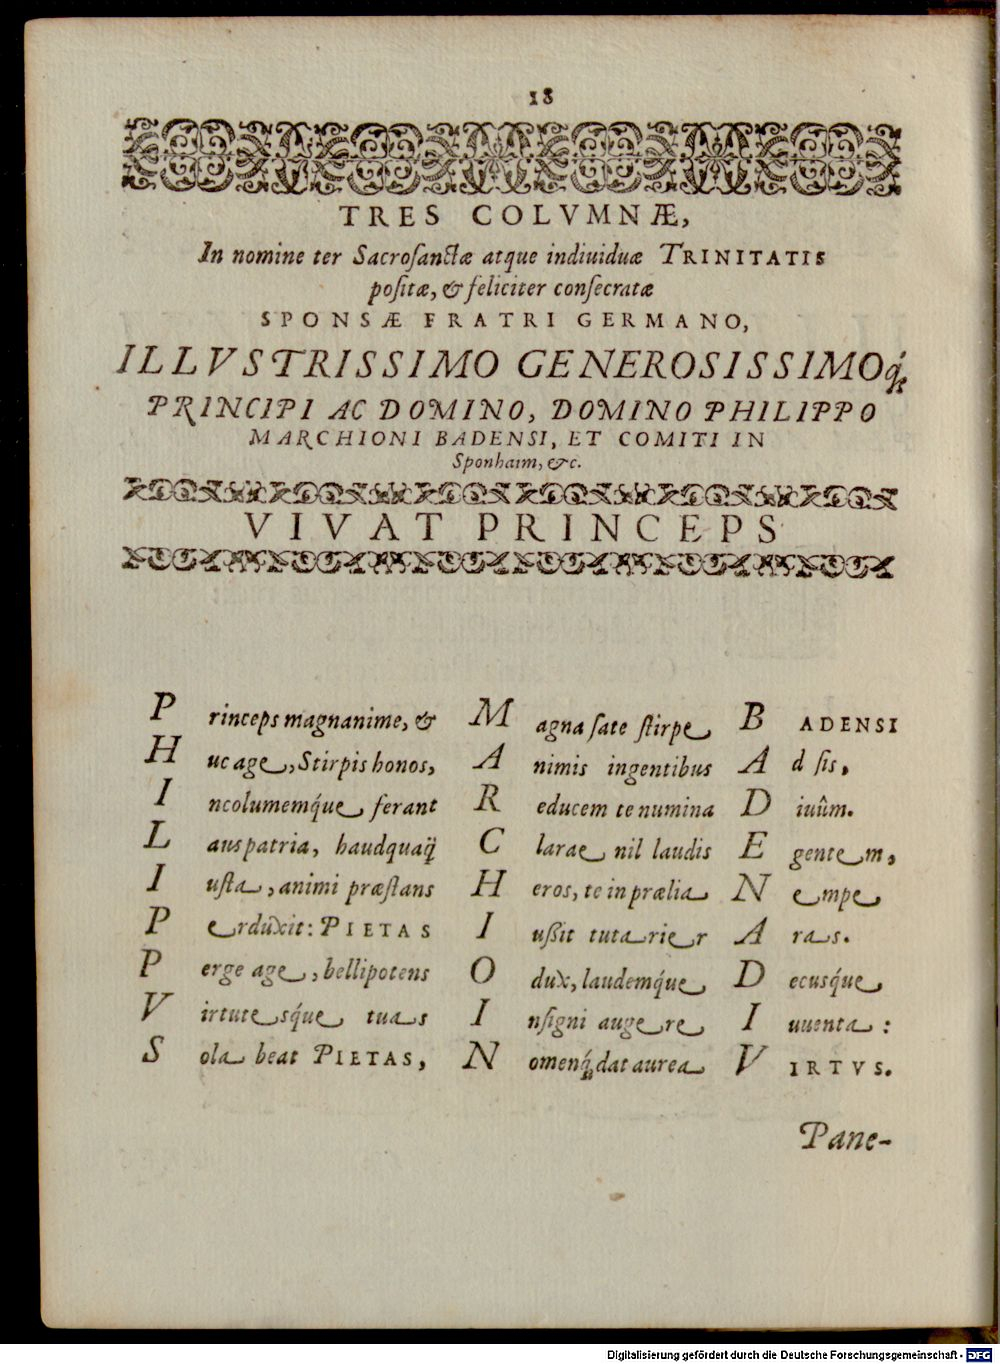 18
TRES COLVMNÆ,
In nomine ter Sacrosanctæ atque indiuiduæ TRINITATIS
positæ, & feliciter consecratæ
SPONSÆ FRATRI GERMANO,
ILLVSTRISSIMO GENEROSISSIMOq́;
PRINCIPI AC DOMINO, DOMINO PHILIPPO
MARCHIONI BADENSI, ET COMITI IN
Sponhaim, &c.
VIVAT PRINCEPS
P rinceps magnanime, & M agna sate stirpe B ADENSI
H uc age, Stirpis honos, A nimis ingentibus A d sis,
I ncolumemq́ue ferant R educem te numina D iuûm.
L aus patria, haudquaq̃ C larae nil laudis E gentem,
I usta, animi præstans H eros, te in prælia N empe
P erduxit: PIETAS I ußit tutarier A ras.
P erge age, bellipotens O dux, laudemq́ue D ecusq́ue
V irtutesq́ue tuas I nsigni augere I uuenta:
S ola beat PIETAS, N omenq́; dat aurea V IRTVS.
Pane-
Digitalisierung gefördert durch die Deutsche Forschungsgemeinschaft - DFG